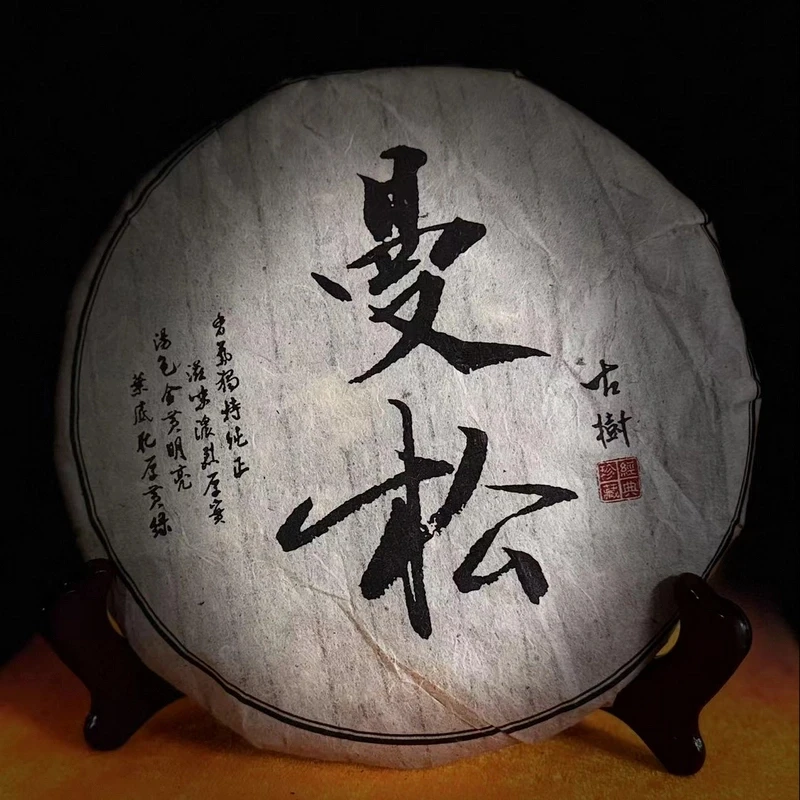 曼松
古樹
經典
珍藏
香氣獨特純正
滋味濃烈厚實
湯色金黃明亮
葉底肥厚黃綠